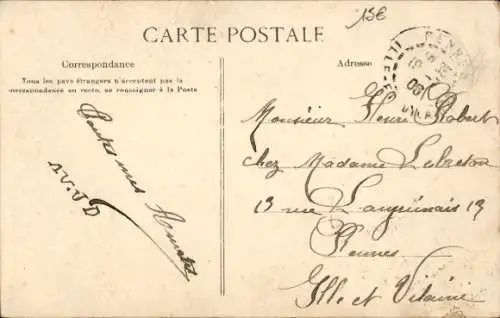 15€
CARTE POSTALE
Correspondance
Tous les pays étrangers n'acceptent pas la
correspondance au recto, se renseigner à la Poste
Toutes mes
Adresse
Monsieur Henri Robert
chez Madame Lebreton
13 rue Languinais 13
Rennes
Ille et Vilaine